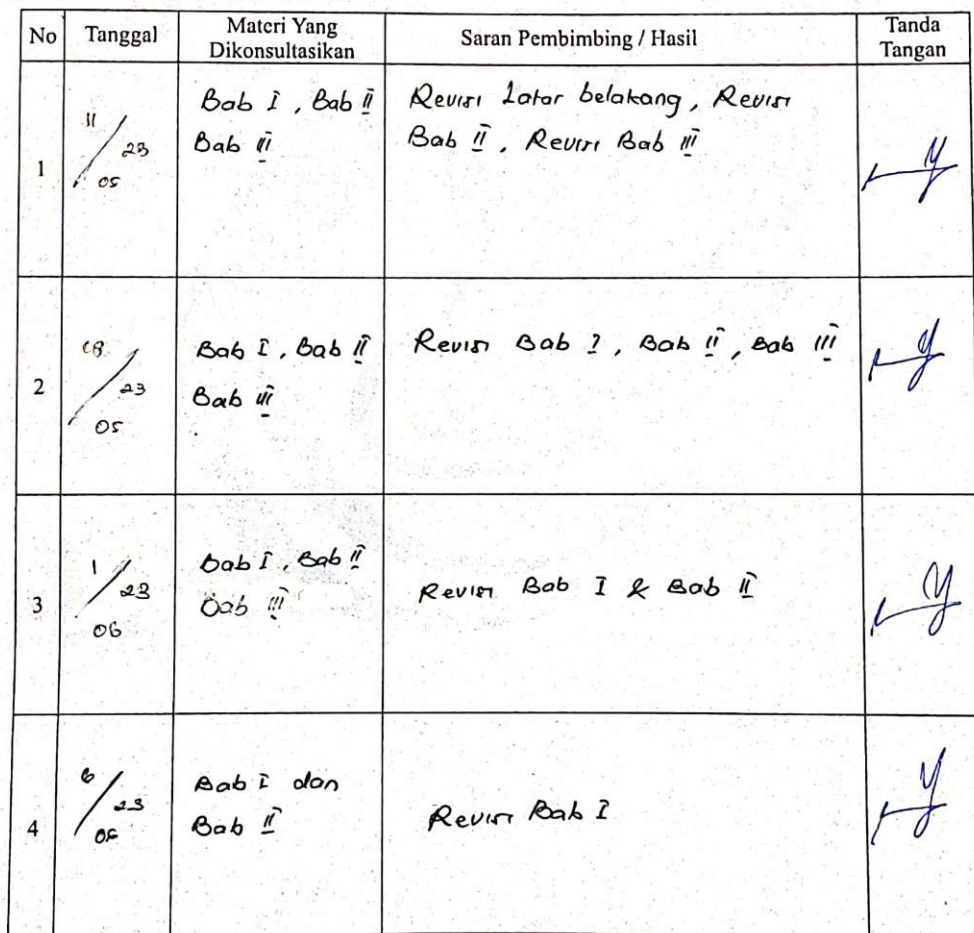 No
Tanggal
Materi Yang
Dikonsultasikan
Saran Pembimbing / Hasil
Tanda
Tangan
1
11/23
05
Bab I, Bab II
Bab III
Revisi Latar belakang, Revisi
Bab II, Revisi Bab III
2
/23
05
Bab I, Bab II
Bab III
Revisi Bab I, Bab II, Bab III
3
1/23
06
Bab I, Bab II
Bab III
Revisi Bab I & Bab II
4
6/23
06
Bab I dan
Bab II
Revisi Bab I